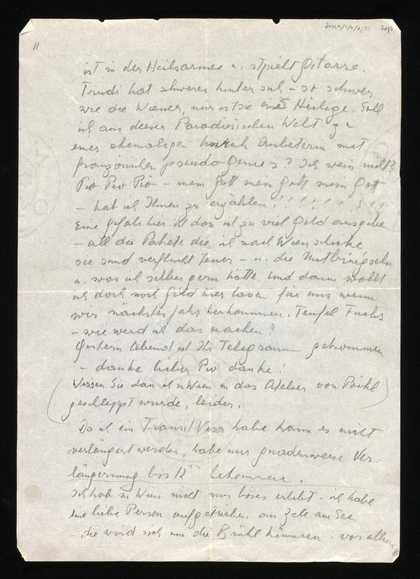 11
ist in der Heilsarmee u. spielt Gitarre.
Trudi hat schweres hinter sich – so schwer
wie die Wiener, nur ist sie eine Heilige. Soll
ich aus dieser Paradiesischen Welt zu
einer ehemaligen Anbeterin mit
französischen pseudo Genies? Ich weiss nicht?
Pio Pio Pio – mein Gott mein Gott mein Gott
– hab ich Ihnen zu erzählen!!!!!!!
Eine Gefahr hier ist das ich zu viel Geld ausgebe
– all die Pakete die ich nach Wien schicke
sie sind verflucht teuer – u. die Mitbringseln
u. was ich selber gern hätte. Und dann wollt
ich doch noch Geld hier lassen für uns wenn
wir nächstes Jahr herkommen. Teufel Fuchs
– wie werd ich das machen?
Gestern Abend ist Ihr Telegramm gekommen
– danke lieber Pio danke!
Wissen Sie dass ich in Wien in das Atelier von
geschleppt wurde, leider.
Da ich ein Transit Visa habe kann es nicht
verlängert werden, habe nur gnadenweise Ver-
längerung bis 15 bekommen.
Ich hab in Wien nicht nur böses erlebt – ich habe
eine liebe Person aufgetrieben, am Zell am See
die wird sich um die Brühl kümmern. Vor allem